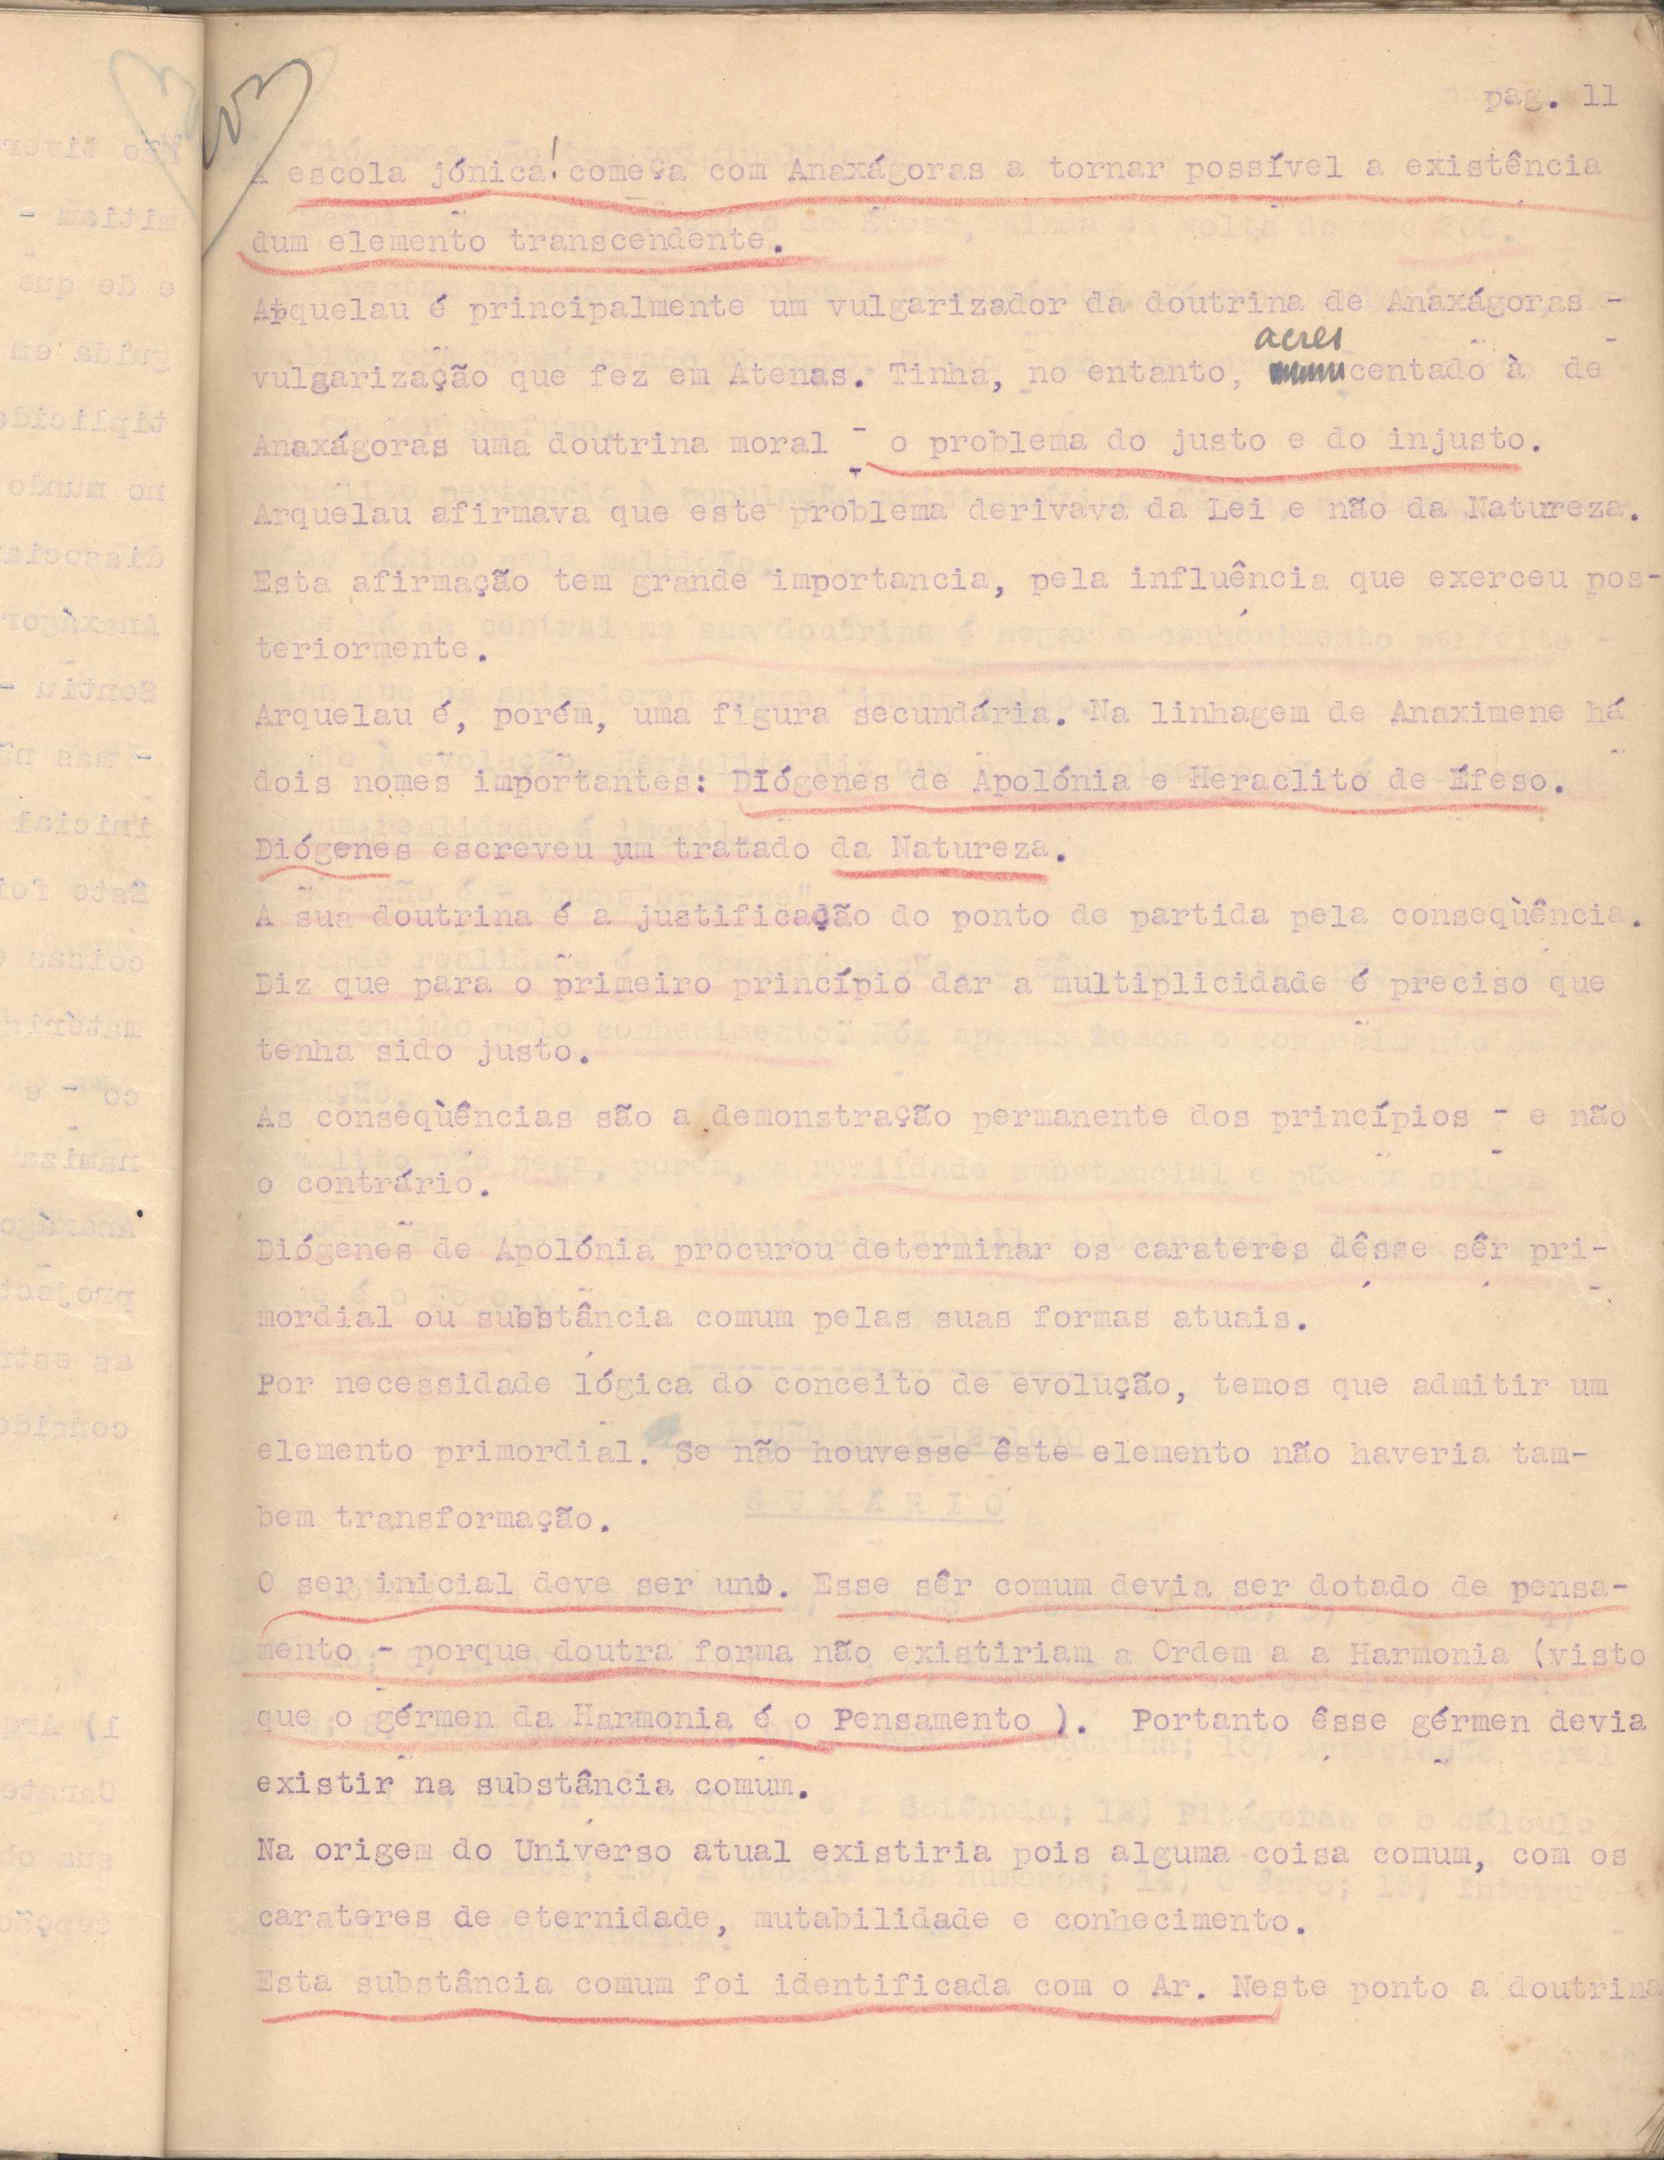 pag. 11
A escola jónica! começa com Anaxágoras a tornar possível a existência
dum elemento transcendente.
Arquelau é principalmente um vulgarizador da doutrina de Anaxágoras -
vulgarização que fez em Atenas. Tinha, no entanto, acrescentado à de
Anaxágoras uma doutrina moral - o problema do justo e do injusto.
Arquelau afirmava que este problema derivava da Lei e não da Natureza.
Esta afirmação tem grande importancia, pela influência que exerceu pos-
teriormente.
Arquelau é, porém, uma figura secundária. Na linhagem de Anaximene há
dois nomes importantes: DIógenes de Apolónia e Heraclito de Éfeso.
Diógenes escreveu um tratado da Natureza.
A sua doutrina é a justificação do ponto de partida pela conseqùência.
Diz que para o primeiro princípio dar a multiplicidade é preciso que
tenha sido justo.
As conseqùências são a demonstração permanente dos princípios - e não
o contrário.
Diógenes de Apolónia procurou determinar os carateres dêsse sêr pri-
mordial ou substância comum pelas suas formas atuais.
Por necessidade lógica do conceito de evolução, temos que admitir um
elemento primordial. Se não houvesse êste elemento não haveria tam-
bem transformação.
O ser inicial deve ser uno. Esse sêr comum devia ser dotado de pensa-
mento - porque doutra forma não existiriam a Ordem a a Harmonia (visto
que o gérmen da Harmonia é o Pensamento ). Portanto êsse gérmen devia
existir na substância comum.
Na origem do Universo atual existiria pois alguma coisa comum, com os
carateres de eternidade, mutabilidade e conhecimento.
Esta substância comum foi identificada com o Ar. Neste ponto a doutrina